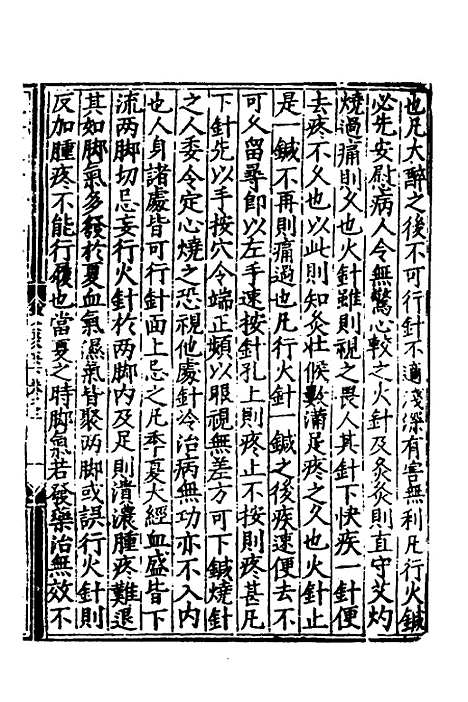 也凡大醉之後不可行針不適淺深有害無利凡行火鍼
必先安慰病人令無驚心較之火針及灸灸則直守艾灼
燒過痛則久也火針雖則視之畏人其針下快疾一針便
去疼不久也以此則知灸壯候數滿足疼之久也火針止
是一鍼不再則痛過也凡行火針一鍼之後疾速便去不
可久留尋即以左手速按針孔上則疼止不按則疼甚凡
下針先以手按穴令端正頻以眼視無差方可下鍼燒針
之人委令定心燒之恐視他處針冷治病無功亦不入內
也人身諸處皆可行針面上忌之凡季夏大經血盛皆下
流两脚切忌妄行火針於两脚內及足則潰濃腫疼難退
其如脚氣多發於夏血氣濕氣皆聚两脚或誤行火針則
反加腫疼不能行履也當夏之時脚氣若發藥治無效不